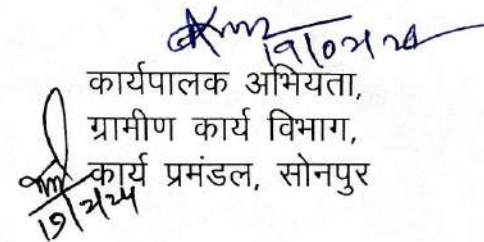 19/02/24
कार्यपालक अभियता,
ग्रामीण कार्य विभाग,
कार्य प्रमंडल, सोनपुर
19/2/24